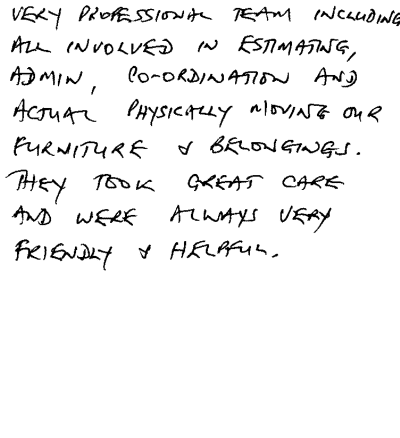 VERY PROFESSIONAL TEAM INCLUDING
ALL INVOLVED IN ESTIMATING,
ADMIN, CO-ORDINATION AND
ACTUAL PHYSICALLY MOVING OUR
FURNITURE & BELONGINGS.
THEY TOOK GREAT CARE
AND WERE ALWAYS VERY
FRIENDLY & HELPFUL.